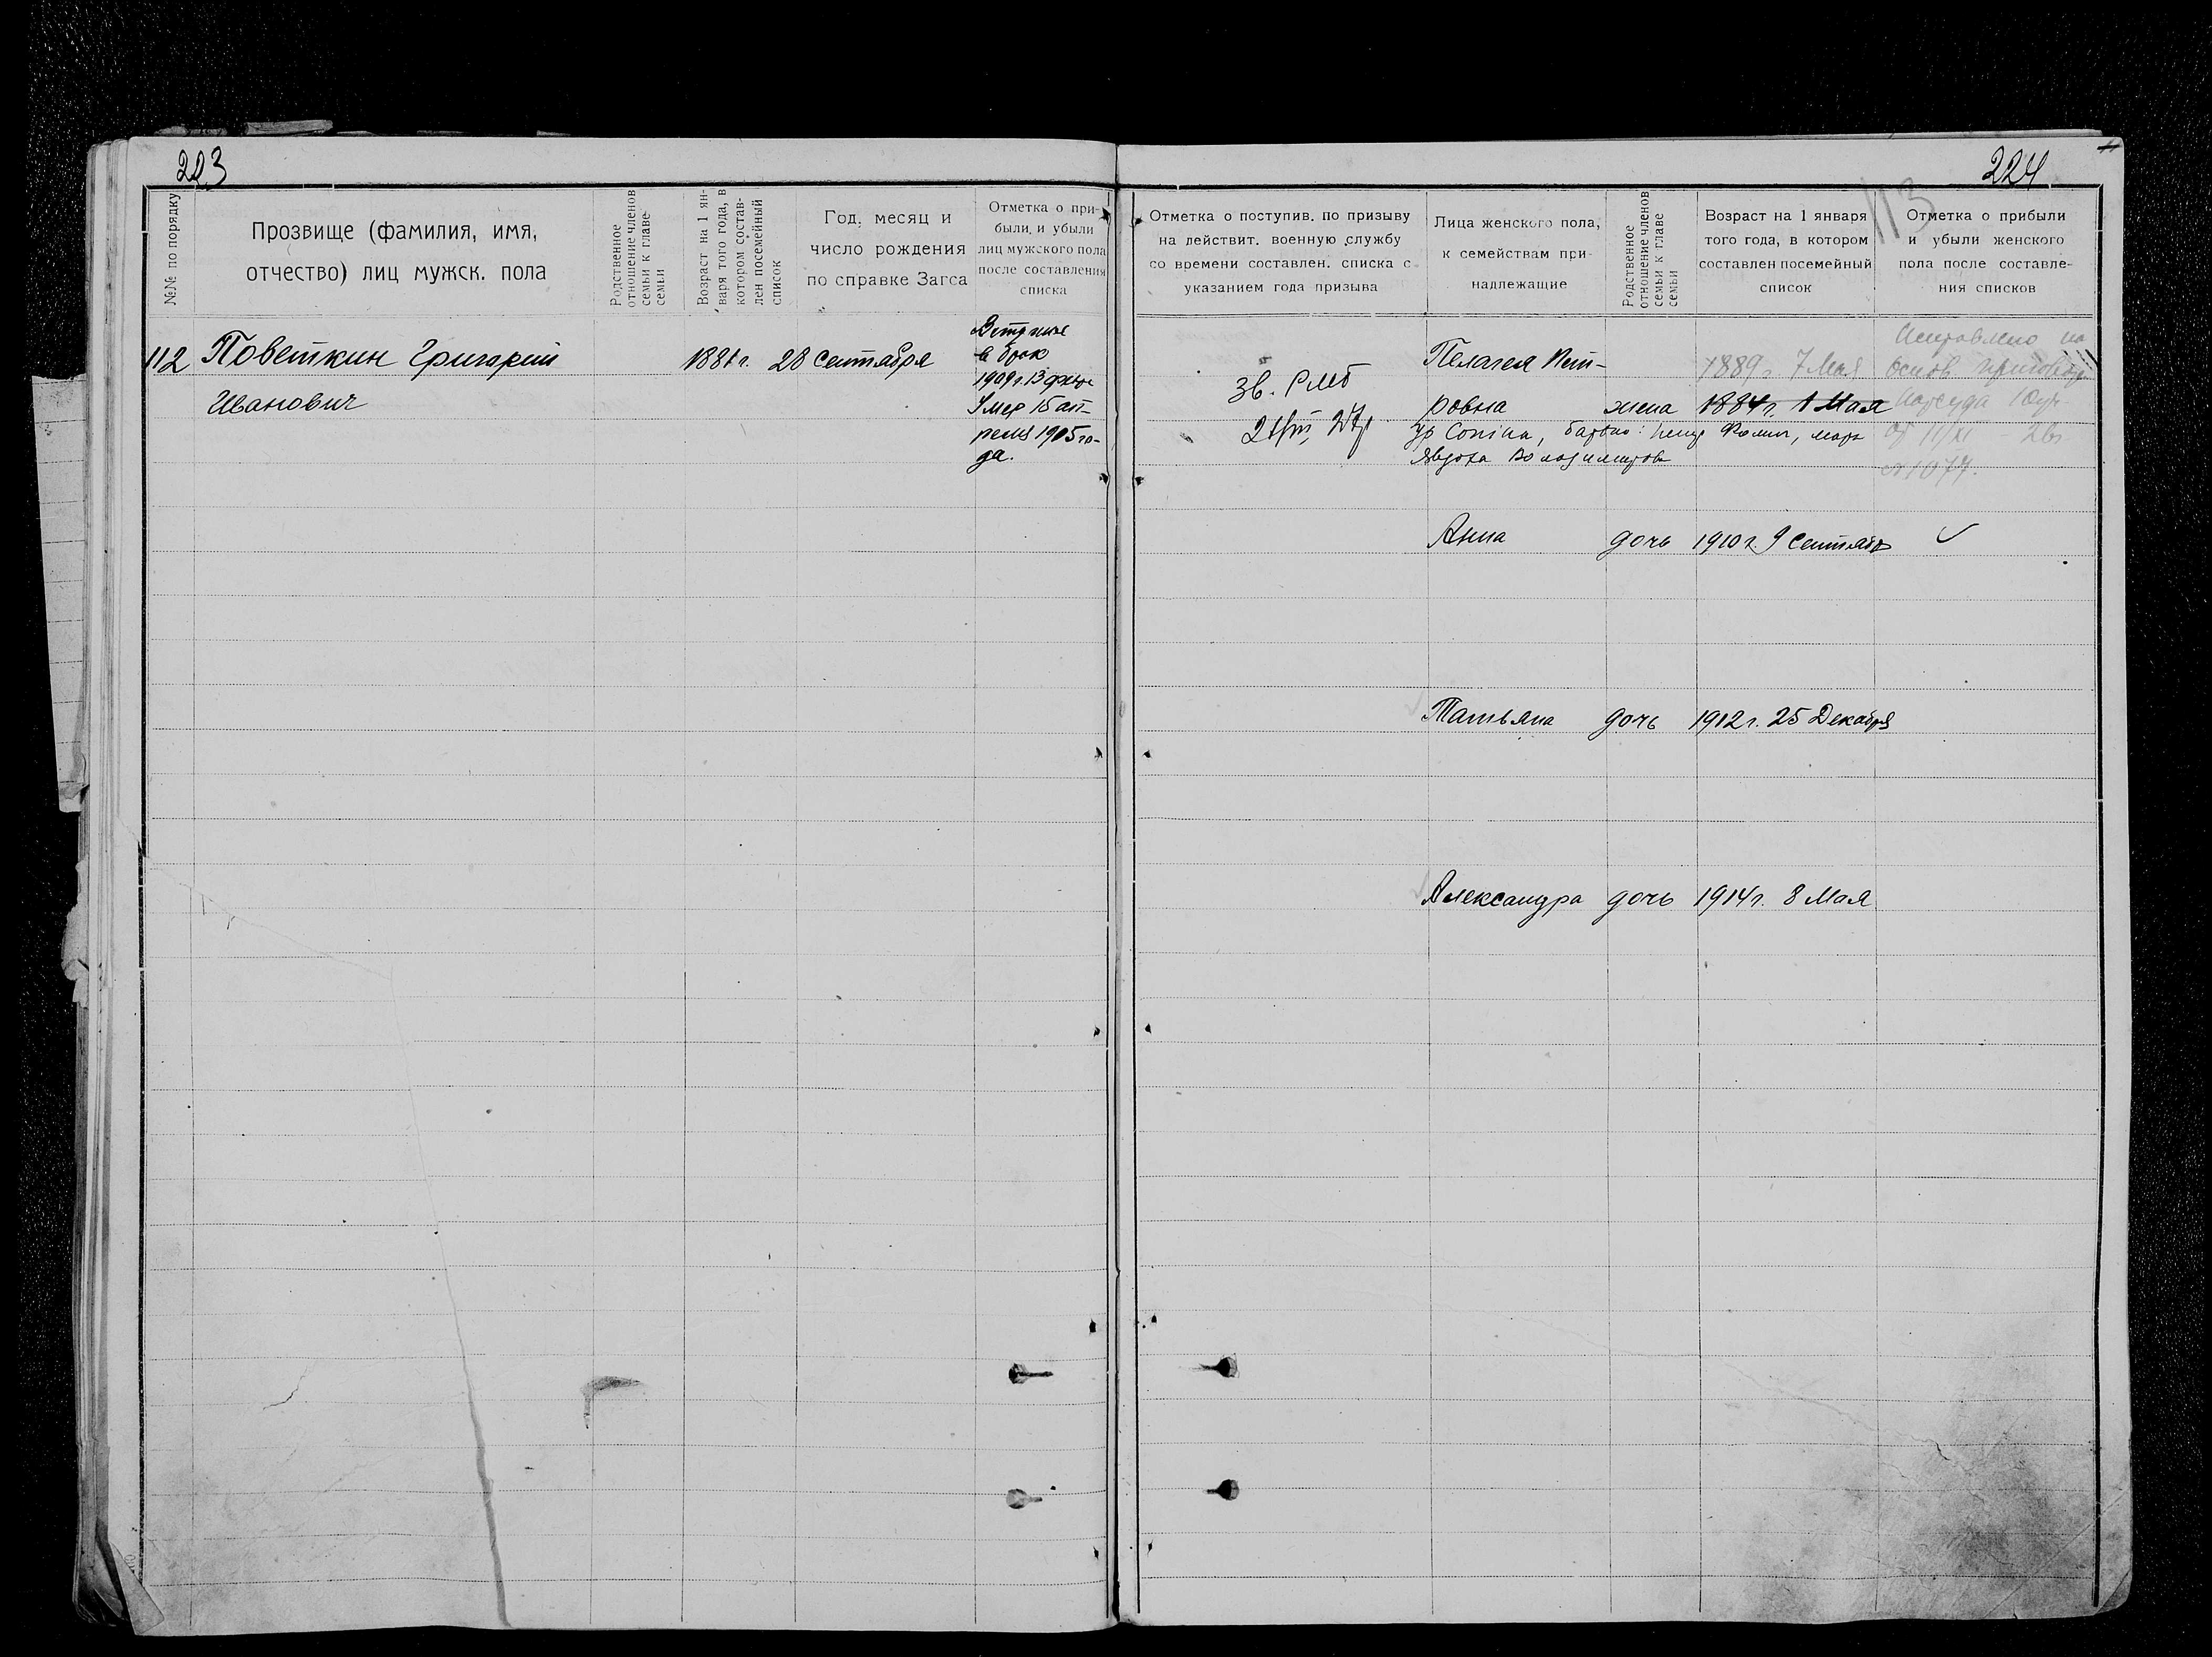 223
№№ по порядку
Прозвище (фамилия, имя,
отчество) лиц мужск. пола
Родственное
отношение членов
семьи к главе
семьи
Возраст на 1 ян-
варя того года, в
котором состав-
лен посемейный
список
Год, месяц и
число рождения
по справке Загса
Отметка о при-
были, и убыли
лиц мужского пола
после составления
списка
112 Поветкин Григорий
Иванович
188 г. 28 Сентября
в брак
1909 г. 13
Умер 15 ап-
реля 1905 го-
да.
224
113
Отметка о поступив. по призыву
на действит. военную службу
со времени составлен. списка с
указанием года призыва
Лица женского пола,
к семействам при-
надлежащие
Родственное
отношение членов
семьи к главе
семьи
Возраст на 1 января
того года, в котором
составлен посемейный
список
Отметка о прибыли
и убыли женского
пола после составле-
ния списков
зв.
Пелагея Пет-
ровна жена 1884 г. 1 Мая
1889 г. 7 Мая
Исправлено на
основ приговора
Нарсуда
№ 1077.
ур Соніна, батько: Фомич,
Явдоха
Анна дочь 1910 г. 9 Сентябр
Татьяна дочь 1912 г. 25 Декабря
Александра дочь 1914 г. 8 Мая